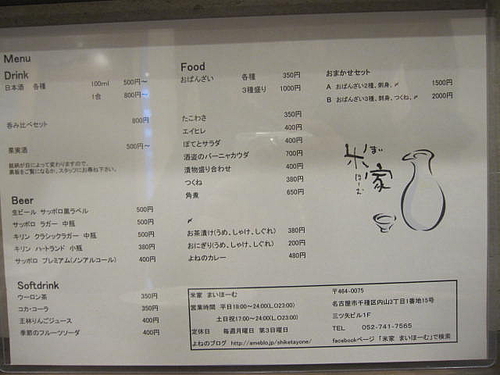 Menu
Drink
日本酒 各種 100ml 500円〜
1合 800円〜
呑み比べセット 800円
果実酒 500円〜
銘柄が日によって変わりますので、
黒板をご覧になるか、スタッフにお尋ね下さい。
Beer
生ビール サッポロ黒ラベル 500円
サッポロ ラガー 中瓶 500円
キリン クラシックラガー 中瓶 500円
キリン ハートランド 小瓶 380円
サッポロ プレミアム(ノンアルコール) 400円
Softdrink
ウーロン茶 350円
コカ・コーラ 350円
王林りんごジュース 400円
季節のフルーツソーダ 400円
Food
おばんざい 各種 350円
3種盛り 1000円
たこわさ 350円
エイヒレ 400円
ぽてとサラダ 400円
酒盗のバーニャカウダ 700円
漬物盛り合わせ 400円
つくね 380円
角煮 650円
〆
お茶漬け(うめ、しゃけ、しぐれ) 380円
おにぎり(うめ、しゃけ、しぐれ) 200円
よねのカレー 480円
おまかせセット
A おばんざい2種、刺身、〆 1500円
B おばんざい3種、刺身、つくね、〆 2000円
米家
まいほーむ
米家 まいほーむ
営業時間 平日18:00〜24:00(L.O23:00)
土日祝17:00〜24:00(L.O23:00)
定休日 毎週月曜日 第3日曜日
よねのブログ http://ameblo.jp/shiketayone/
〒464-0075
名古屋市千種区内山3丁目1番地15号
三ツ矢ビル1F
TEL 052-741-7565
facebookページ 「米家 まいほーむ」で検索